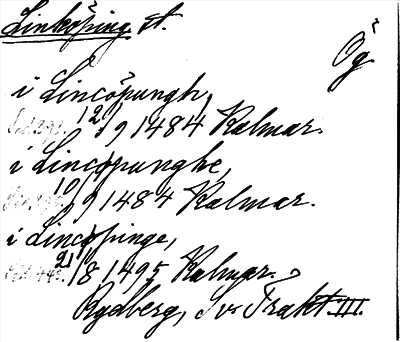 Linköping st.
Ög.
i Lincöpungh,
12/9 1484 Kalmar.
i Lincøpunghe,
10/9 1484 Kalmar.
i Lincøpinge,
21/8 1495 Kalmar.
Rydberg, Sv. Trakt. III.